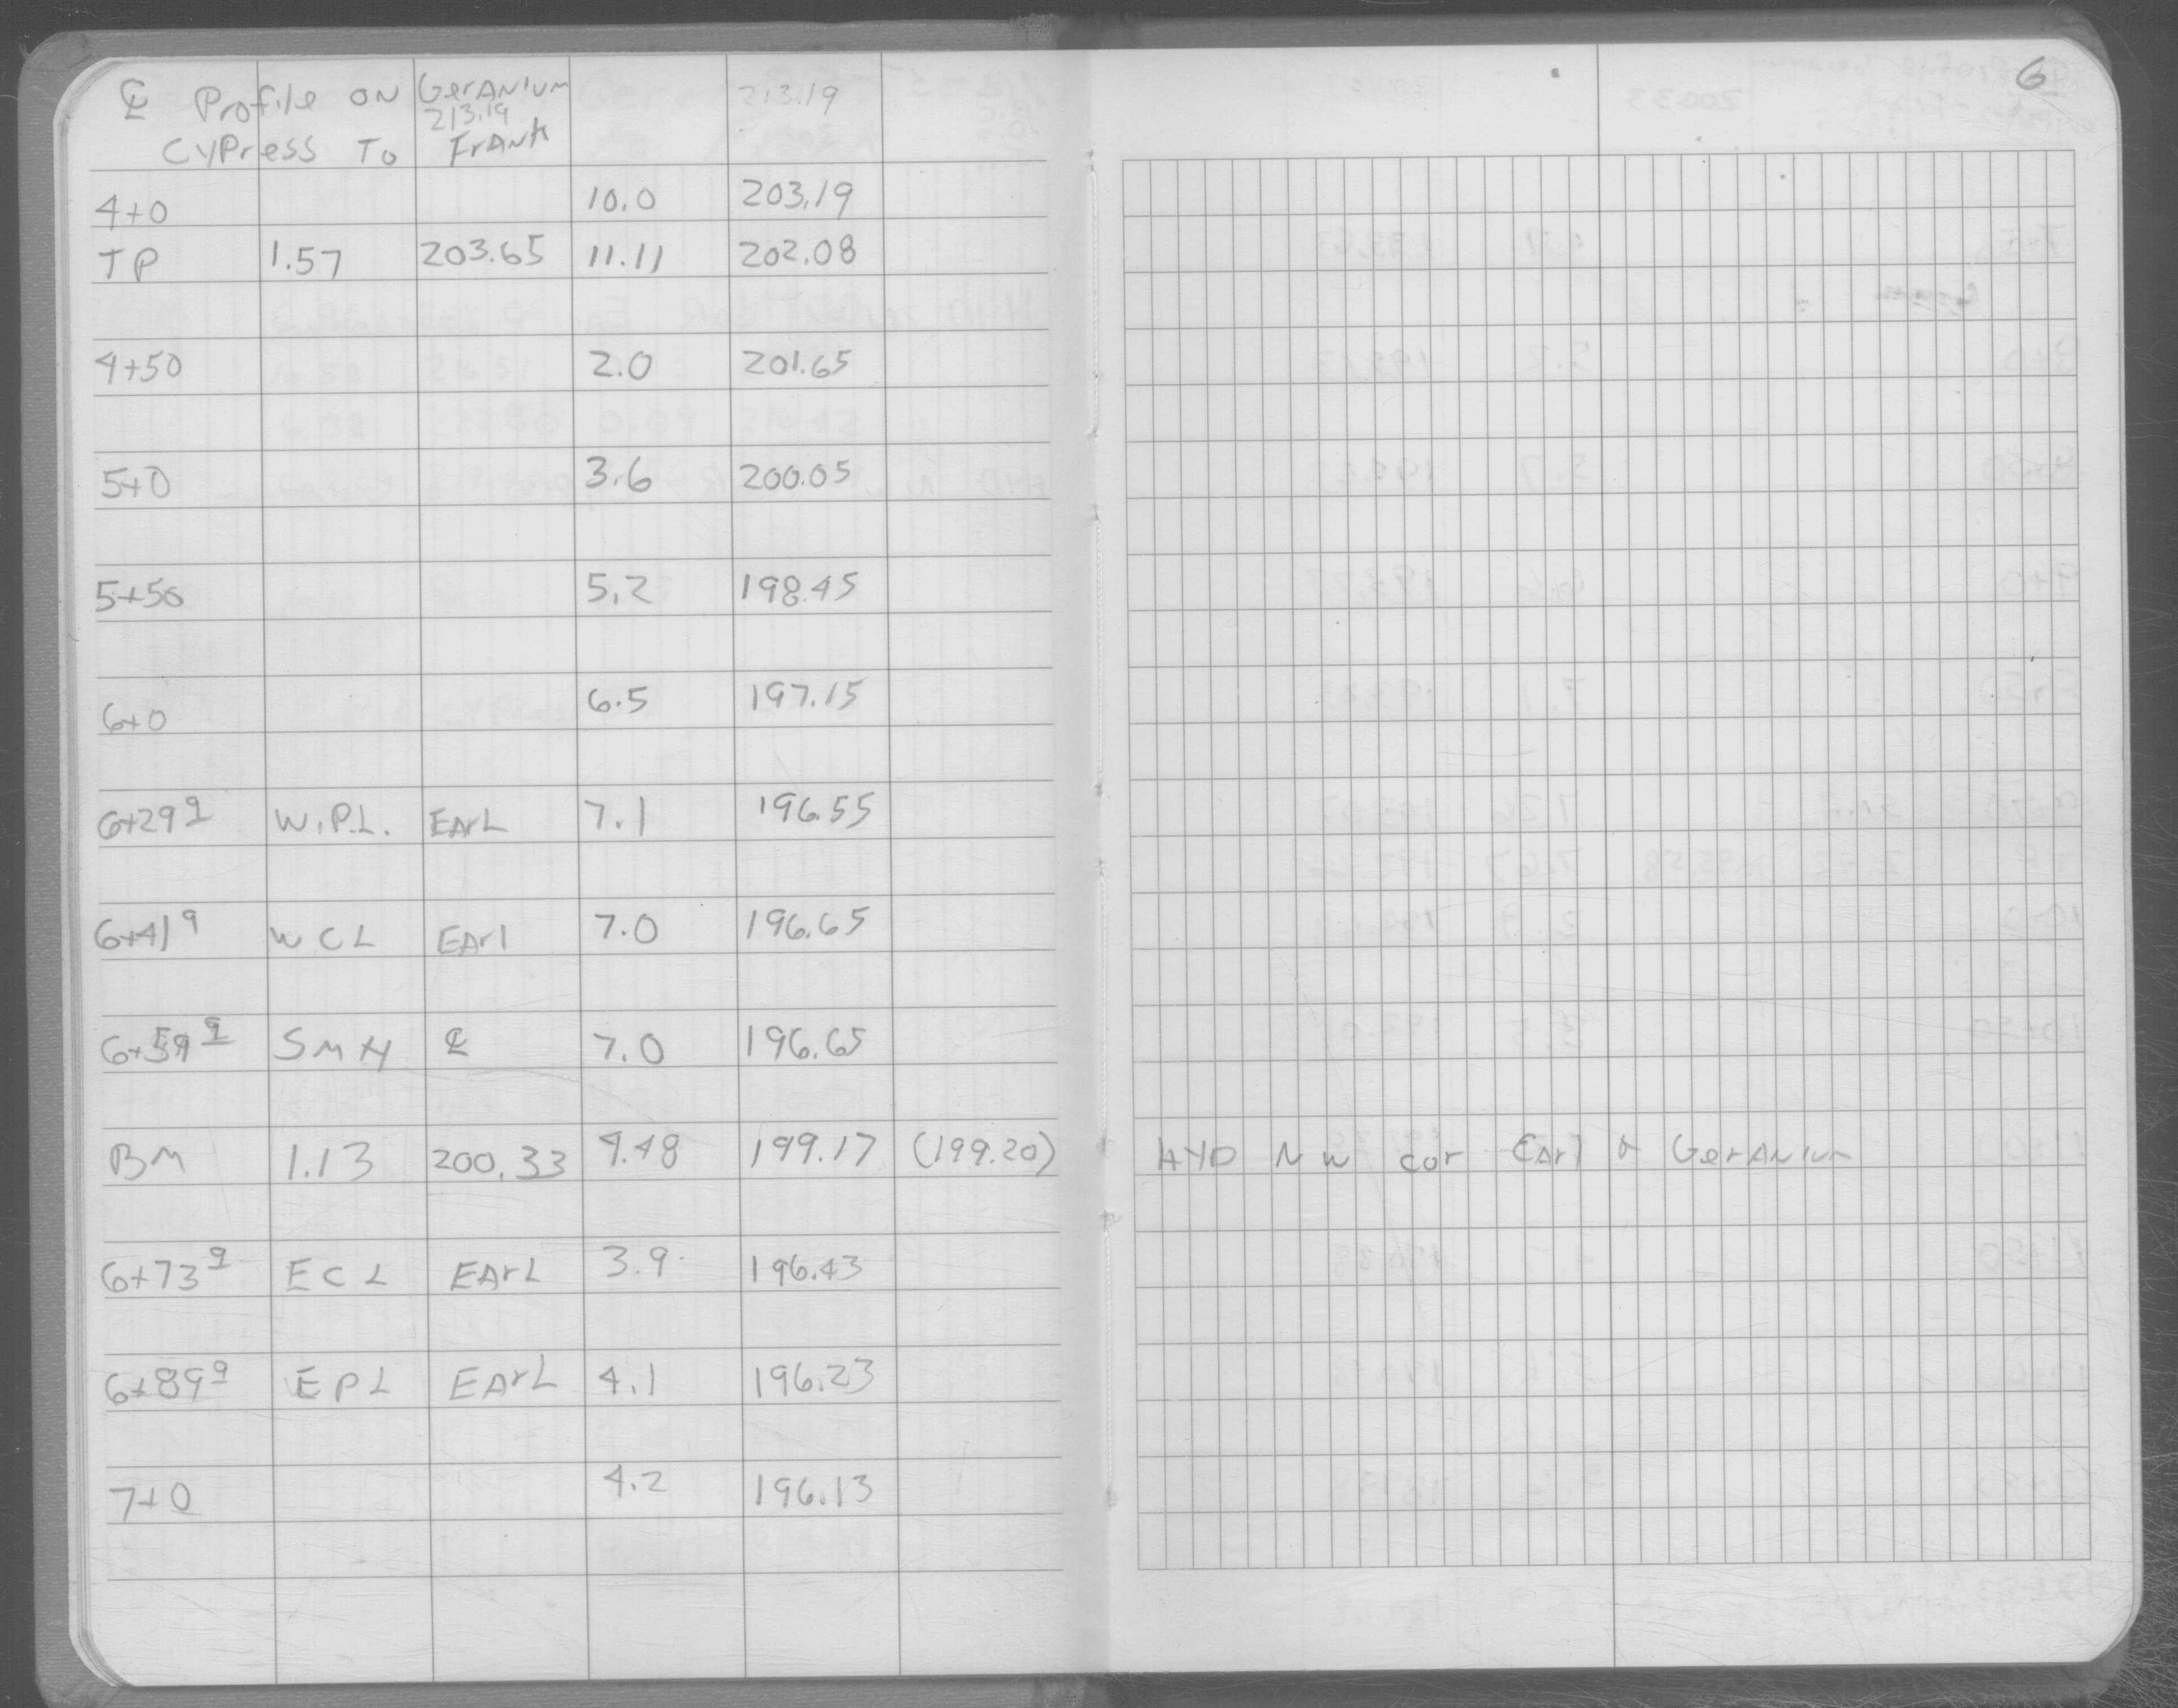 ℄ Profile on Geranium 213.19
213.19
Cypress To Frank
4+0 10.0 203.19
TP 1.57 203.65 11.11 202.08
4+50 2.0 201.65
5+0 3.6 200.05
5+50 5.2 198.45
6+0 6.5 197.15
6+29⁹ W.P.L. Earl 7.1 196.55
6+41⁹ W C L Earl 7.0 196.65
6+59⁹ S M H ℄ 7.0 196.65
BM 1.13 200.33 4.48 199.17 (199.20)
6+73⁹ E C L Earl 3.9 196.43
6+89⁹ E P L Earl 4.1 196.23
7+0 4.2 196.13
6
HYD N W cor Earl & Geranium